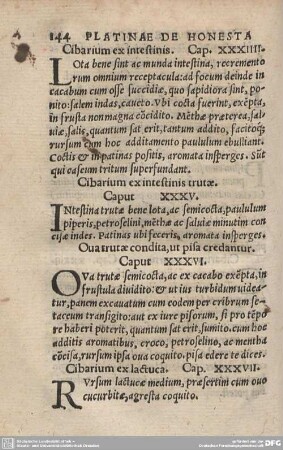 144 PLATINAE DE HONESTA
Cibarium ex intestinis. Cap. XXXIIII.
LOta bene sint ac munda intestina, recremento
rum omnium receptacula: ad focum deinde in
cacabum cum osse succidiæ, quo sapidiora sint, po-
nito: salem indas, caueto. Vbi cocta fuerint, exēpta,
in frusta non magna cōcidito. Mēthæ præterea, sal-
uiæ, salis, quantum sat erit, tantum addito, facitoq́;
rursum cum hoc additamento paululum ebulliant.
Coctis & in patinas positis, aromata insperges. Sūt
qui caseum tritum superfundant.
Cibarium ex intestinis trutæ.
Caput XXXV.
INtestina trutæ bene lota, ac semicocta, paululum
piperis, petroselini, mēthæ ac saluiæ minutim con
cisæ indes. Patinas ubi feceris, aromata insperges.
Oua trutæ condita, ut pisa credantur.
Caput XXXVI.
OVa trutæ semicocta, ac ex cacabo exēpta, in
frustula diuidito: & ut ius turbidum uidea-
tur, panem excauatum cum eodem per cribrum se-
taceum transigito: aut ex iure pisorum, si pro tēpo
re haberi poterit, quantum sat erit, sumito. cum hoc
additis aromatibus, croco, petroselino, ac mentha
cōcisa, rursum ipsa oua coquito. pisa edere te dices.
Cibarium ex lactuca. Cap. XXXVII.
RVrsum lactucæ medium, præsertim cum ouo
cucurbitæ, agresta coquito.